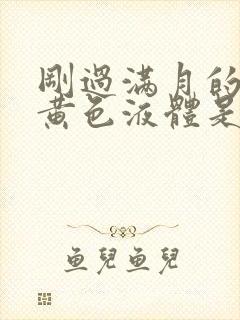 剛過滿月的
黃色液體是
魚兒魚兒